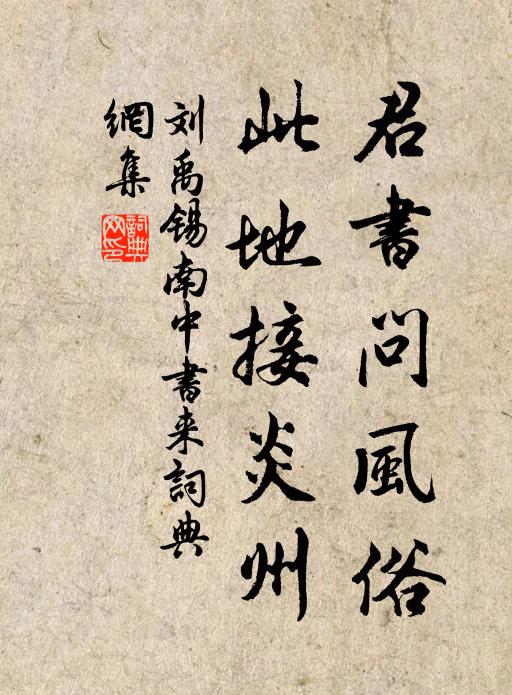 君書問風俗
此地接炎州
刘禹锡南中書来詞典
網集
詞典
网印